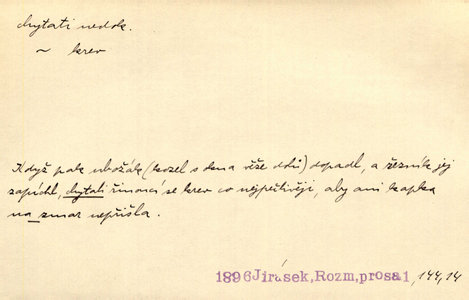 chytati nedok.
~ krev
Když pak ubožák (kozel s okna věže dolů) dopadl, a řezník jej
zapíchl, chytali řinoucí se krev co nejpečlivěji, aby ani kapka
na zmar nepřišla.
1896 Jirásek, Rozm, prosa1, 144,14